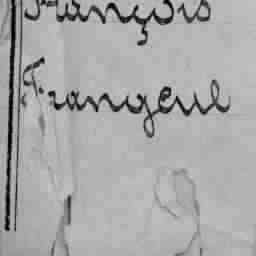 François
Frangeul